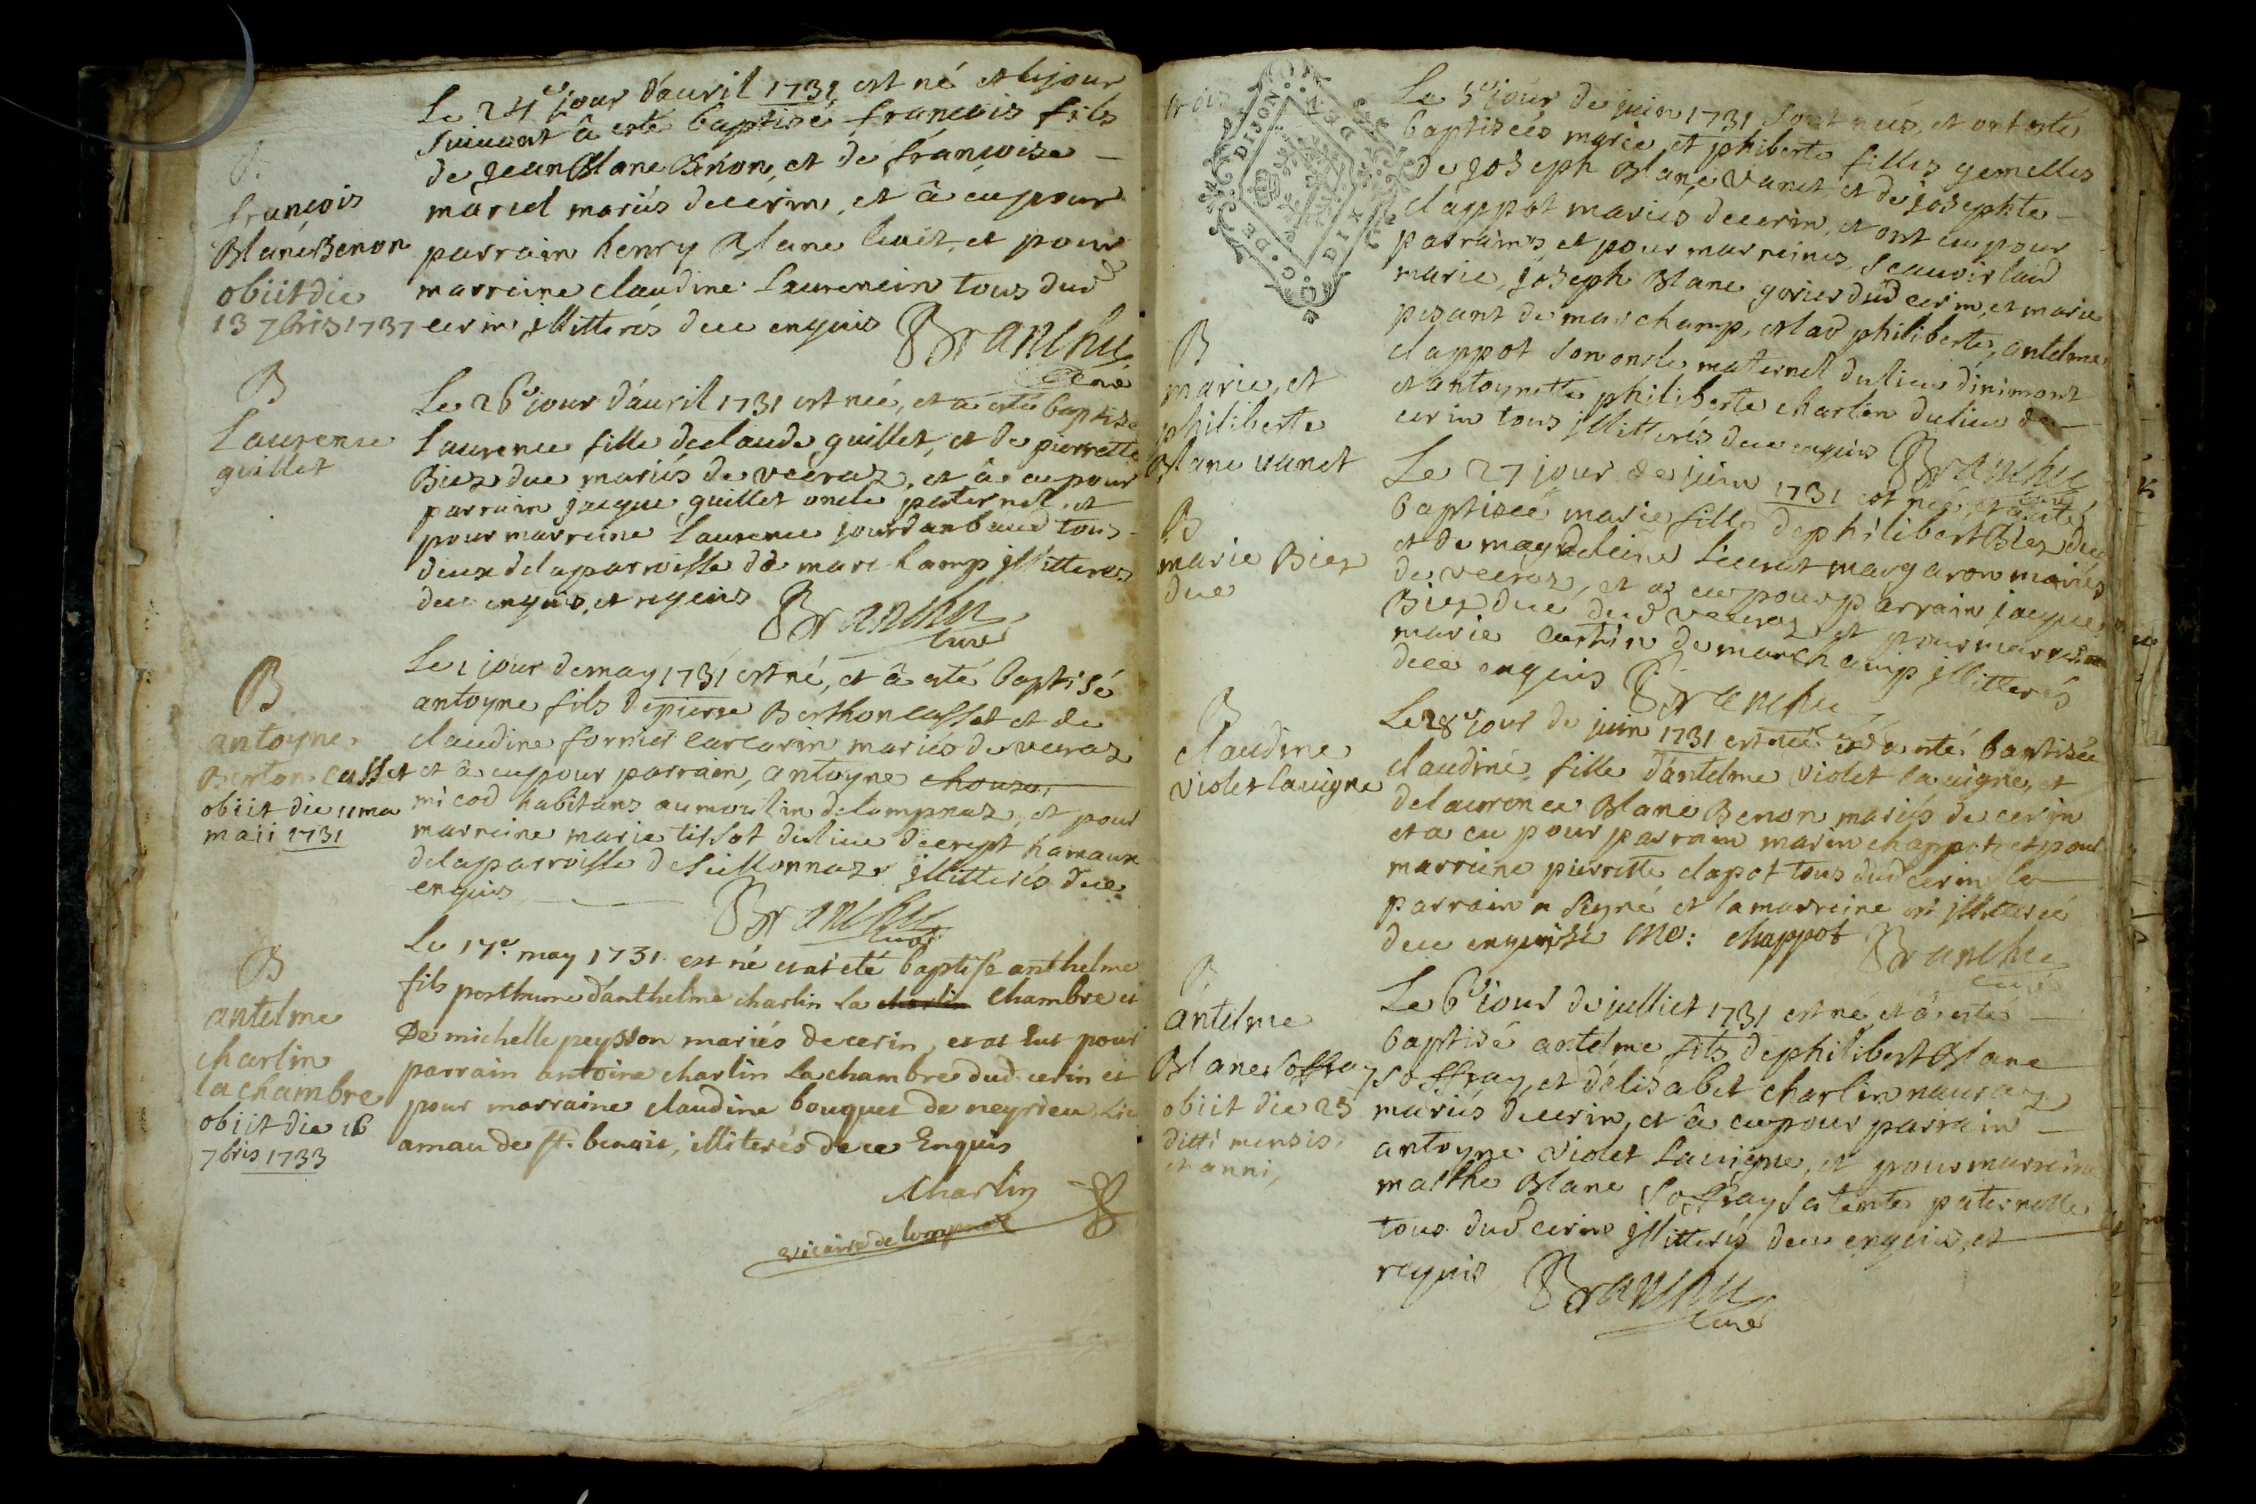 B.
françois
Blanc Benon
obiit die
13 7bris 1737
Le 24e jour d'auril 1731 est né et le jour
suiuant â esté baptisé françois fils
de Jean Blanc Benon, et de françoise
marcel mariés de cerin, et â eu pour
parrain henry Blanc et pour
marreine claudine Laurencin tous dud
cerin illitterés de ce enquis Branchu
Curé
B
Laurence
guillet
Le 26e jour d'auril 1731 est née, et a esté baptisé
Laurence fille de claude guillet, et de pierrette
Biez duc mariés de veeraz, et â eu pour
parrain jaque guillet oncle paternel, et
pour marreine Laurence jourdan baud tous
deux de la parroisse de marchamp illitteres
de ce enquis, et requis Branchu
Curé
B
antoyne
Berton Cassset
obiit die 11ma
maii 1731
Le 1 jour de may 1731 est né, et â esté baptisé
antoyne fils de pierre Berthon casset et de
claudine fornier carcarin mariés de veeraz
et â eu pour parrain, antoyne
micod habitans au moulin de lompnaz, et pour
marreine marie tissot du lieu de crept hamaux
de la parroisse de seillonnaz illitterés de ce
enquis Branchu
Curé
B
antelme
charlin
la chambre
obiit die 16
7bris 1733
Le 17e. may 1731 est né et at eté baptisé anthelme
fils posthume d'anthelme charlin la charlin Chambre et
De michelle peysson mariés de cerin, et at eut pour
parrain antoine charlin la chambre dud. cerin et
pour marraine claudine bouquet de neyrieu
amau de st. benoit, illiterés de ce Enquis
Charlin
vicaire de lompnaz
trois
G. DE DIJON
DIX DEN
B
marie, et
philiberte
Blanc vanet
Le 5e jour de juin 1731 sont nées, et ont estés
baptisées marie et philiberte filles gemelles
de joseph Blanc vanet et de josephte
clappot mariés de cerin, et ont eu pour
parrains et pour marreines, scauoir lad
marie, joseph Blanc gorier dud cerin, et marie
pesant de marchamp, et lad philiberte, antelme
clappot son oncle maternel du lieu d'inimont
et antoynette philiberte charlin du lieu de
cerin tous illitterés de ce enquis Branchu
Curé
B
marie Biez
duc
Le 27 jour de juin 1731 est née, et a esté
baptisée marie fille de philibert Biez duc
et de magdeleine margaron mariés
de veeraz, et a eu pour parrain jaque
Biez duc dud veeraz et pour marreine
marie de marchamp illitterés
de ce enquis Branchu
B
claudine
violet lauigne
Le 28e jour de juin 1731 est née et a esté baptisée
claudine, fille d'antelme violet la uigne, et
de laurence Blanc Benon mariés de cerin
et a eu pour parrain marin chappot, et pour
marreine pierrette clapot tous dud cerin le
parrain a signé et la marreine est illitterée
de ce enquise me: chappot Branchu
Curé
B
antelme
Blanc soffray
obiit die 23
dicti mensis,
et anni,
Le 6e jour de julliet 1731 est né et â esté
baptisé antelme fils de philibert Blanc
soffray, et d'elisabet charlin nauraz
mariés de cerin, et â eu pour parrain
antoyne violet Lauigne, et pour marreine
marthe Blanc soffray sa tente paternelle
tous dud cerin illitterés de ce enquis, et
requis Branchu
Curé